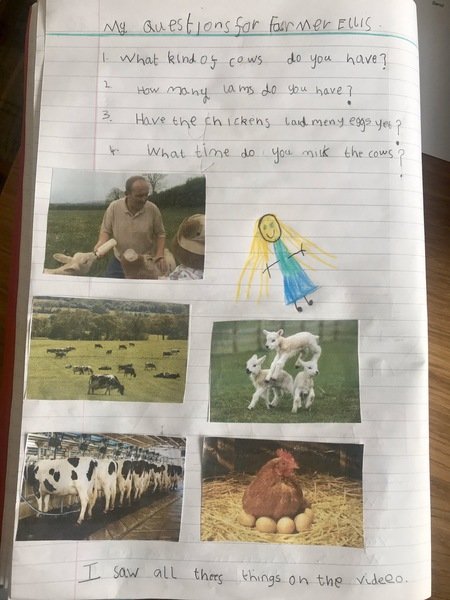 My Questions for Farmer Ellis.
1. What kind of cows do you have?
2. How many lams do you have?
3. Have the chickens laid meny eggs yet?
4. What time do you milk the cows?
I saw all thers things on the video.